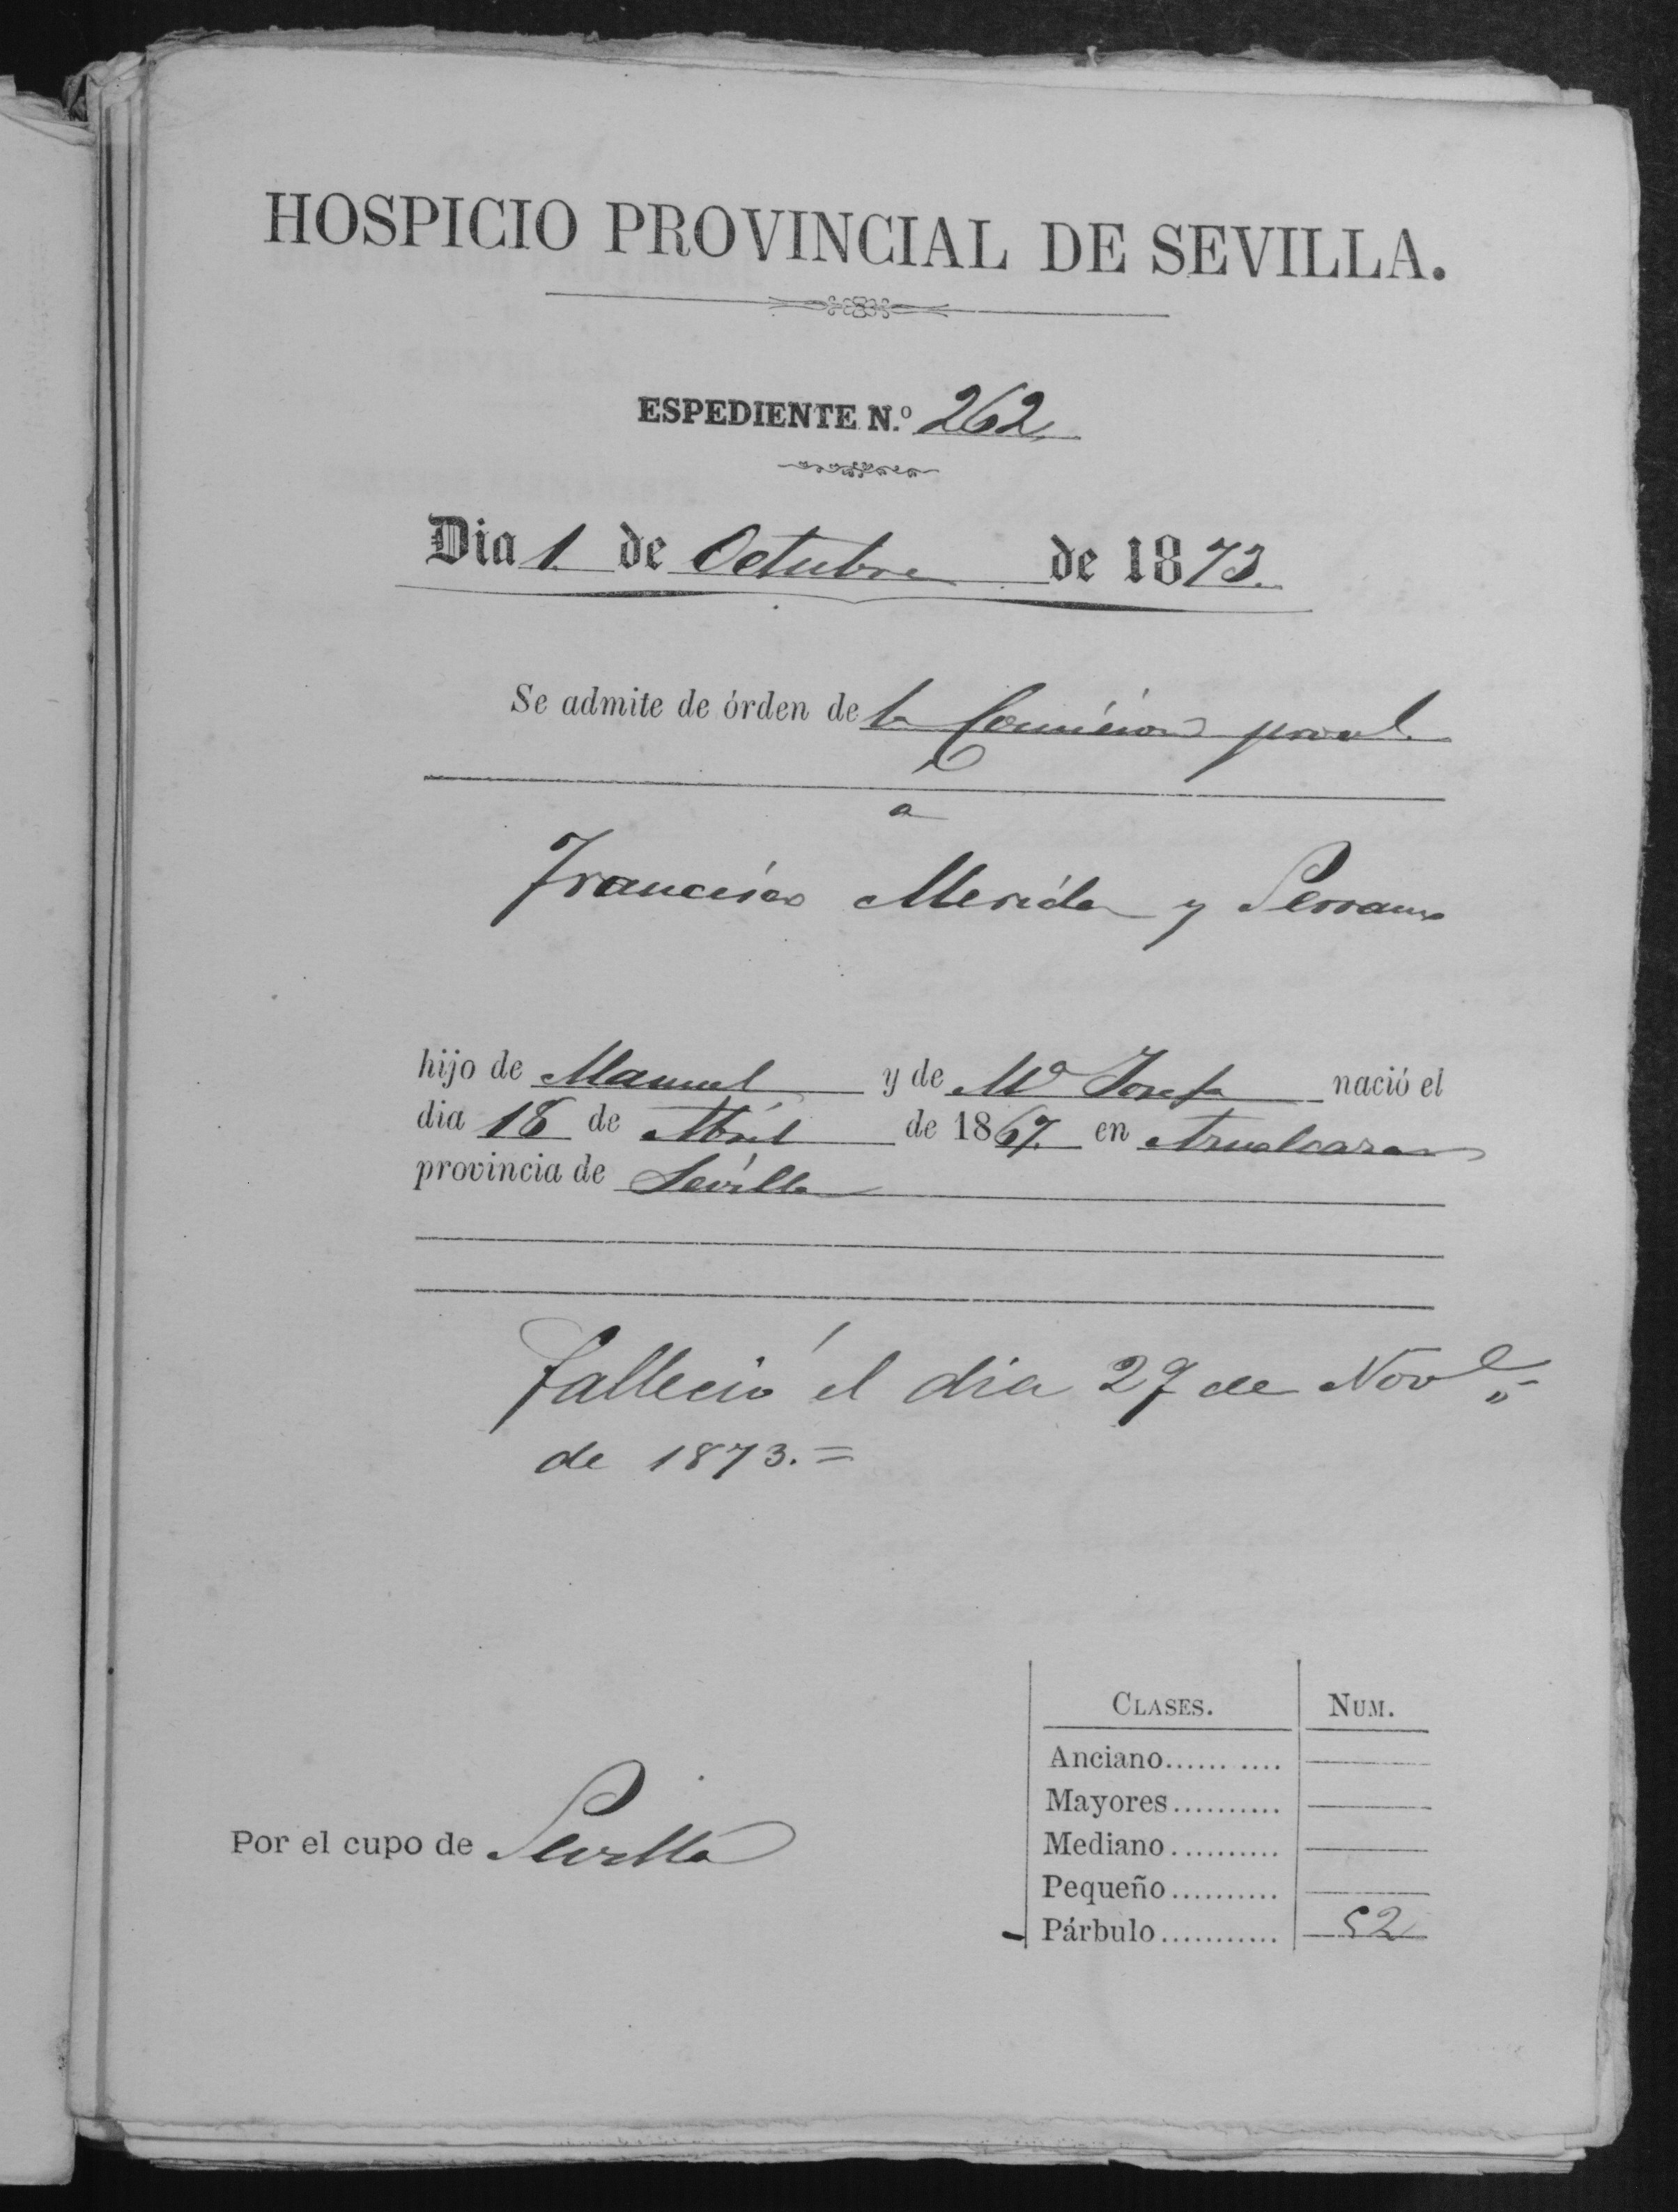 HOSPICIO PROVINCIAL DE SEVILLA.
ESPEDIENTE N.º 262
Dia 1. de Octubre de 1873.
Se admite de órden de la Comision proval.
a
Francisco Merida y Serrano
hijo de Manuel y de Mª Josefa nació el
dia 18 de Abril de 1867. en Aznalcazar
provincia de Sevilla
Falleció el dia 27 de Nove
de 1873.=
CLASES. NUM.
Anciano...... ....
Mayores..........
Mediano..........
Por el cupo de Sevilla
Pequeño..........
Párbulo........... 52